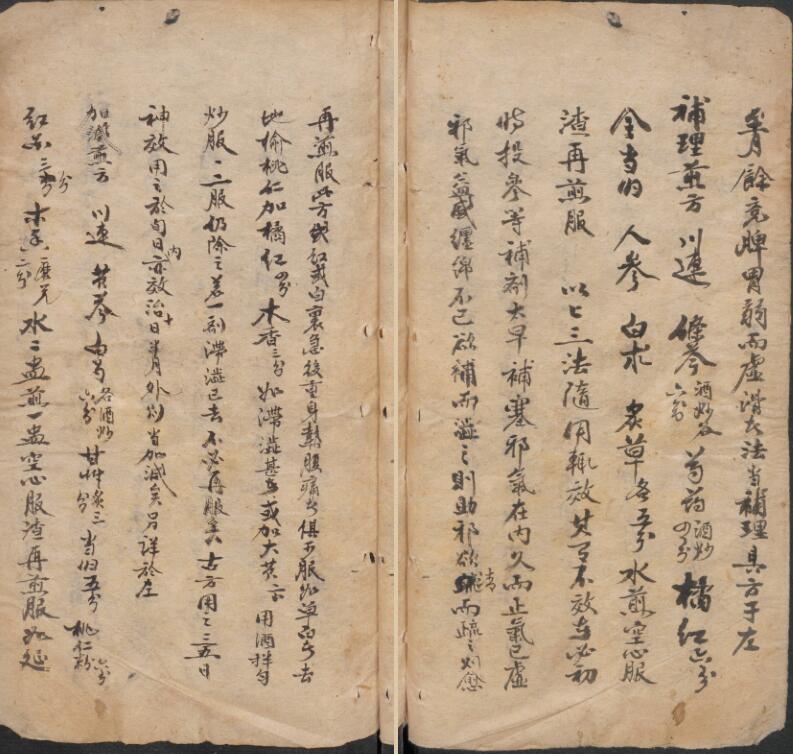 至月餘竟脾胃弱而虛滑者法當補理其方于左
補理煎方 川連 條芩酒炒各六分 芍药酒炒四分 橘红六分
全当归 人参 白术 炙草各五分 水煎空心服
渣再煎服 以上三法隨用輒效其有不效者必初
時投參等補剤大早補塞邪氣在內久而正氣已虛
邪氣益盛纏绵不已欲補而澁之則助邪欲清而疏之則愈
再煎服此方或红或白裏急後重身熱腹痛者俱可服如單白者去
地榆桃仁加橘红四分木香三分如滯澁甚者或加大黄二钱用酒拌匀
炒服一二服仍除之若一剤滯澁已去不必再服矣古方用之三五日
神效用之於旬日內亦效治十日半月外則當加減矣另詳於左
加減煎方 川連 黄芩 白芍各酒炒六分 甘艸炙三分 当归五分 桃仁粉六分
红花三分 木香磨兑二分 水二盅煎一盅空心服渣再煎服如延